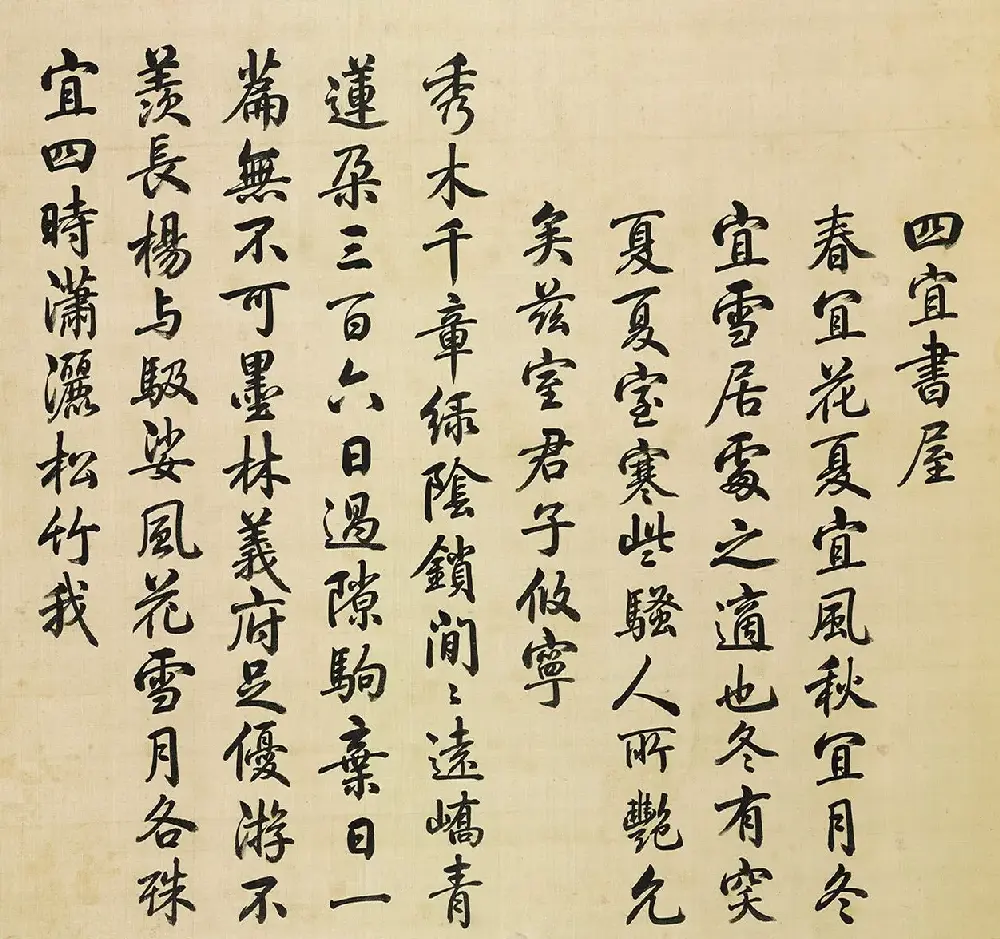 四宜書屋
春宜花夏宜風秋宜月冬
宜雪居處之適也冬有突
夏夏室寒些騷人所艷允
矣茲室君子攸寧
秀木千章緑陰鎖間〻遠嶠青
蓮朶三百六日過隙駒棄日一
篇無不可墨林義府足優游不
羨長楊与馺娑風花雪月各殊
宜四時瀟灑松竹我